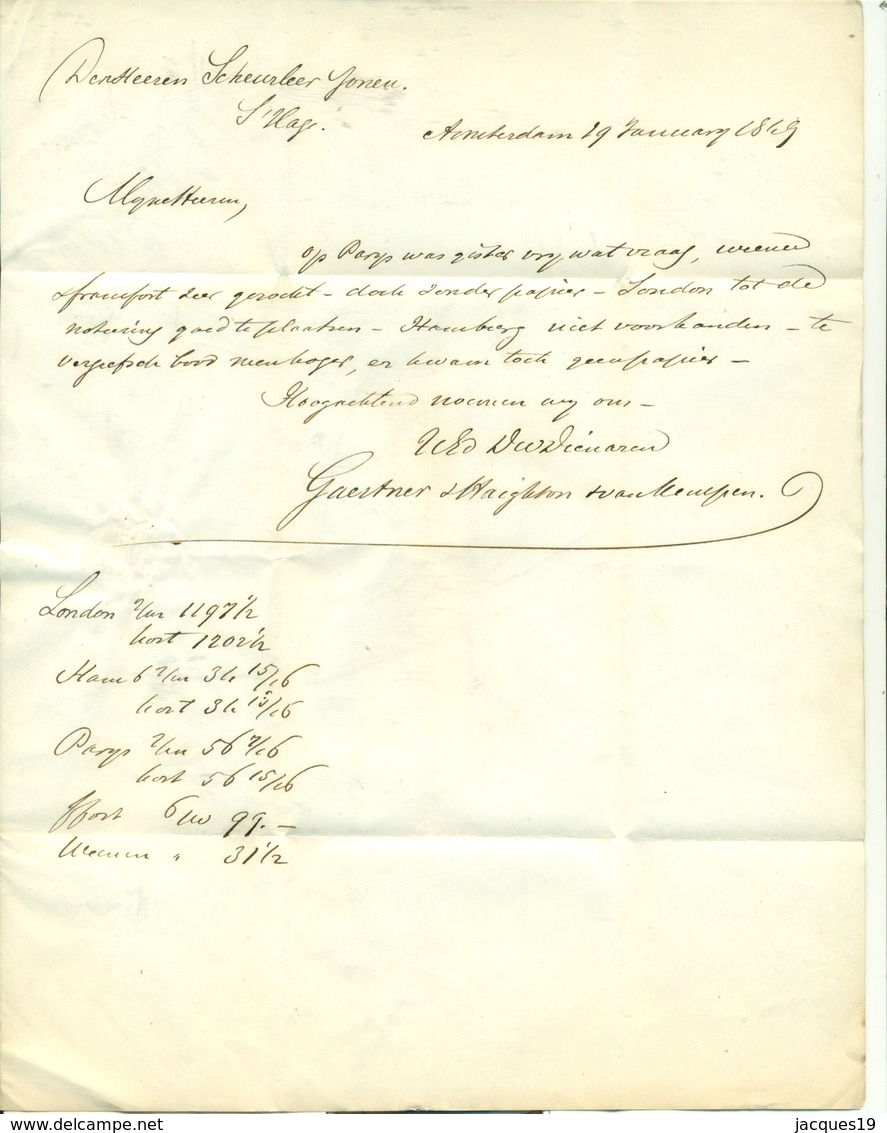 Den Heeren Scheurleer Zonen.
S'Hage.
Amsterdam 29 January 1849
Myne Heeren,
op Parys was gister vry wat vraag, weenen
& franfort zeer gezocht – doch zonder papier – London tot de
notering goed te plaatsen – Hamburg niet voorhanden – te
vergeefsch bood men hoger, er kwam toch geen papier –
Hoogachtend noemen wy ons –
UEd DwDienaren
Gaestner & Haighton & van Kempen.
London 2/m 1197½
kort 1202½
Ham 6 2/m 34 15/16
kort 34 15/16
Parys 2/m 56 7/16
kort 56 15/16
ffort 6 W 99.–
Weenen " 31½
jacques19
delcampe.net